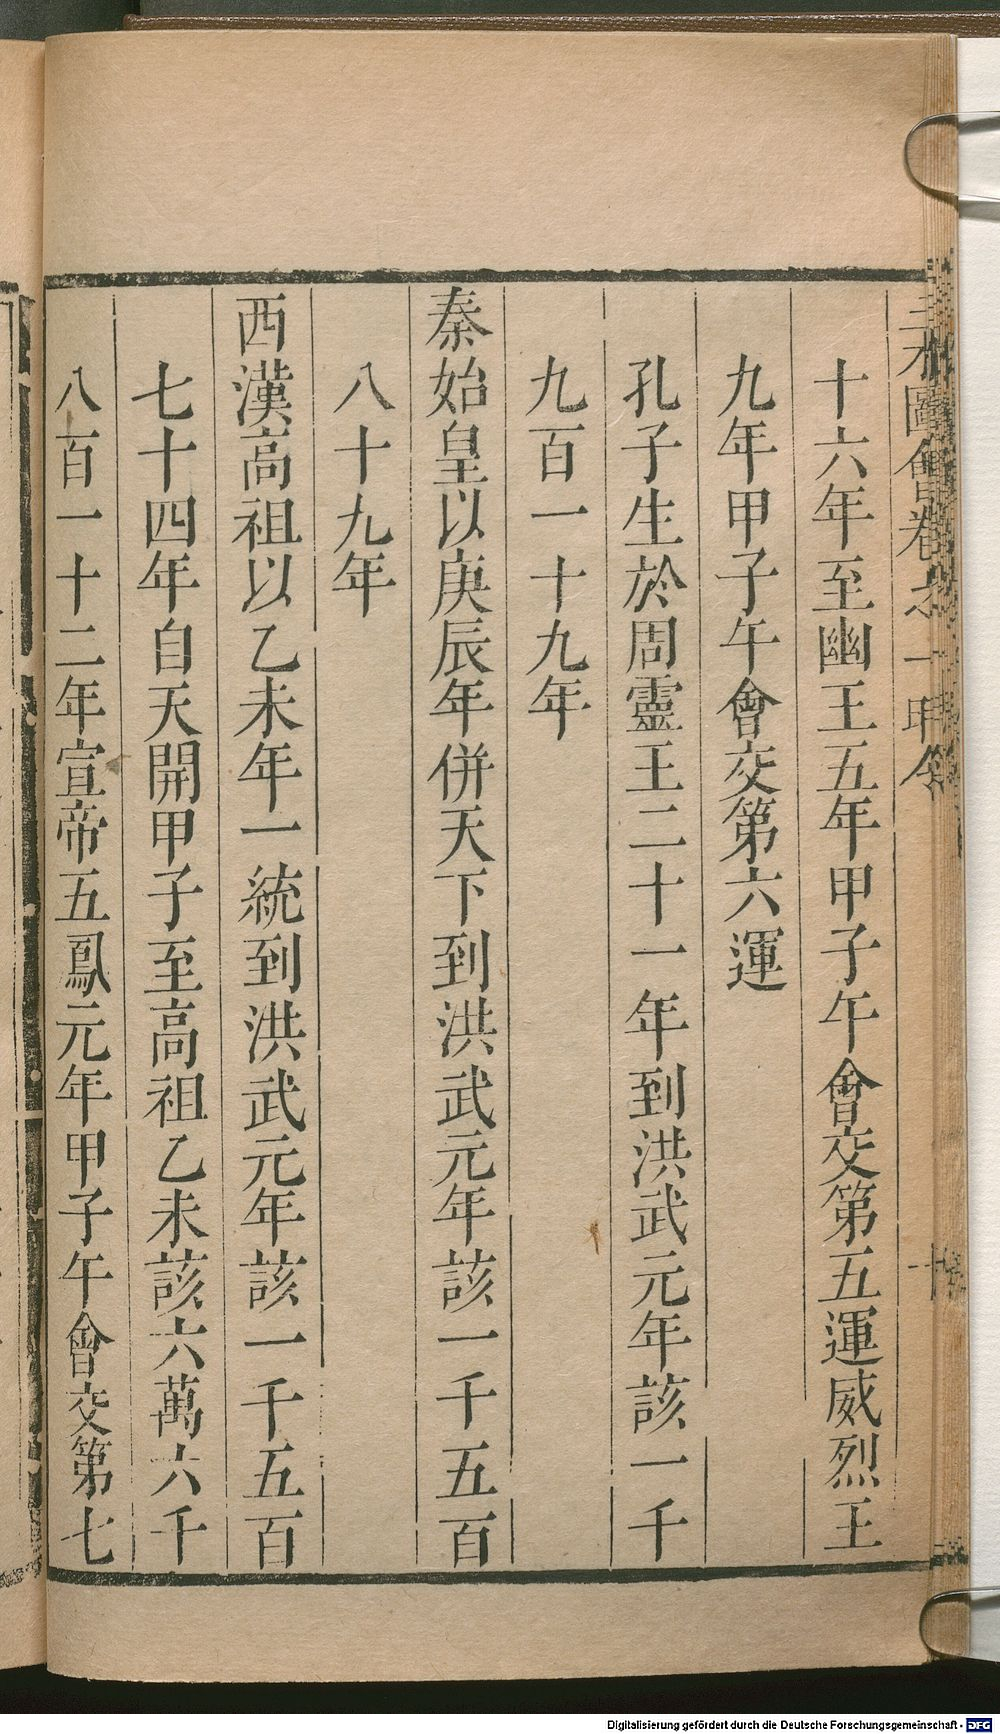 十六年至幽王五年甲子午會交第五運威烈王
九年甲子午會交第六運
孔子生於周靈王二十一年到洪武元年該一千
九百一十九年
秦始皇以庚辰年併天下到洪武元年該一千五百
八十九年
西漢高祖以乙未年一統到洪武元年該一千五百
七十四年自天開甲子至高祖乙未該六萬六千
八百一十二年宣帝五鳳元年甲子午會交第七
圖會卷之一
Digitalisierung gefördert durch die Deutsche Forschungsgemeinschaft - DFG